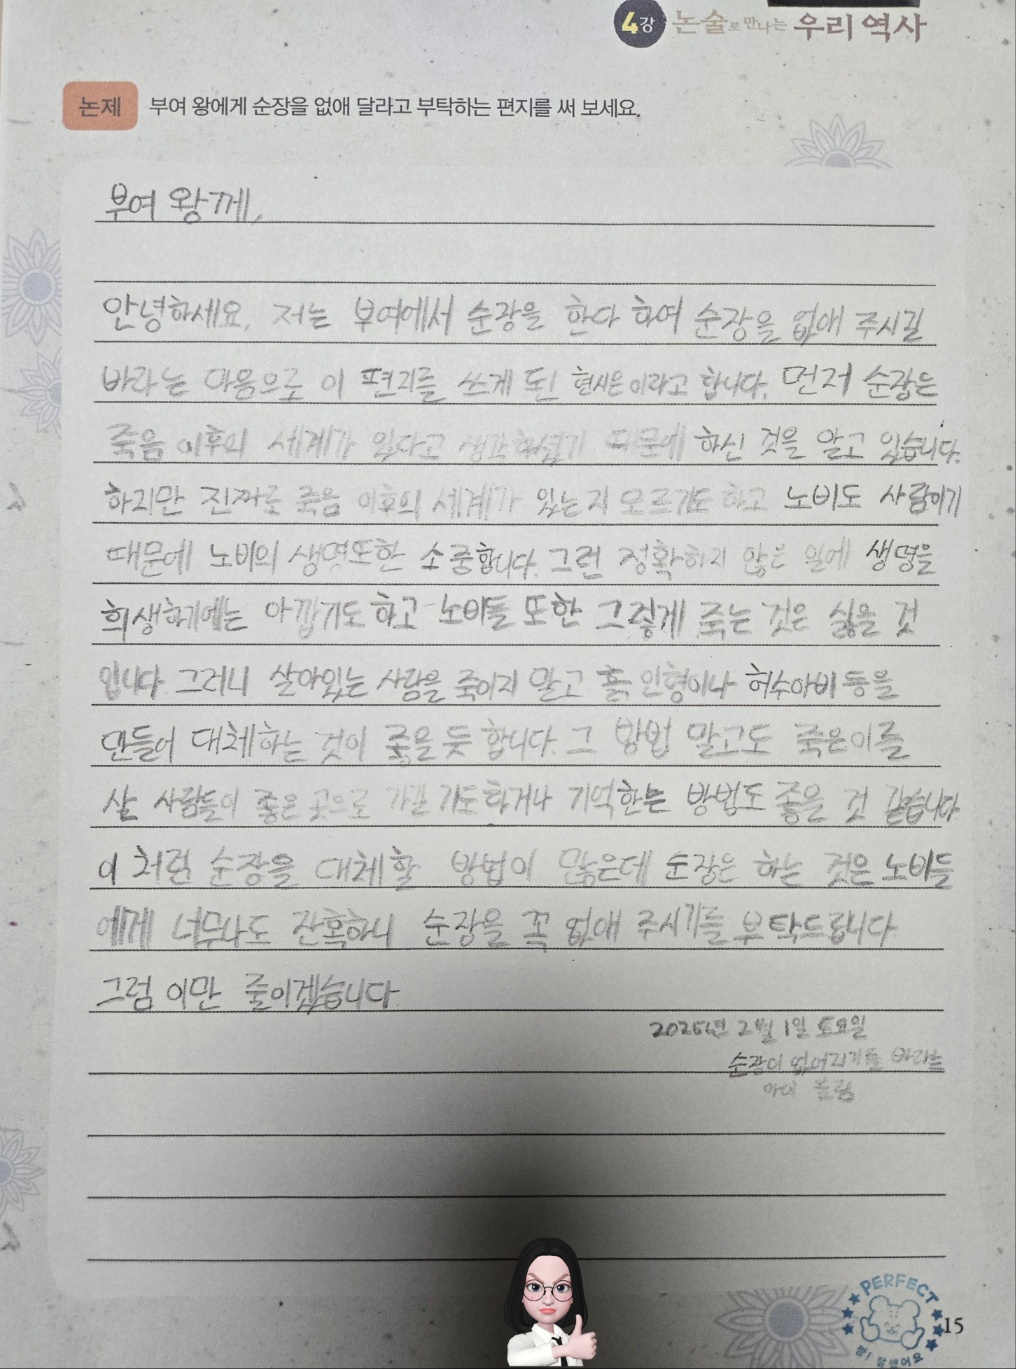 4강 논술로 만나는 우리 역사
논제 부여 왕에게 순장을 없애 달라고 부탁하는 편지를 써 보세요.
부여 왕께,
안녕하세요, 저는 부여에서 순장을 한다 하여 순장을 없애 주시길
바라는 마음으로 이 편지를 쓰게 된 현시은이라고 합니다. 먼저 순장은
죽음 이후의 세계가 있다고 생각하셨기 때문에 하신 것을 알고 있습니다.
하지만 진짜로 죽음 이후의 세계가 있는지 모르기도 하고 노비도 사람이기
때문에 노비의 생명또한 소중합니다. 그런 정확하지 않은 일에 생명을
희생하기에는 아깝기도 하고 노비들 또한 그렇게 죽는 것은 싫을 것
입니다 그러니 살아있는 사람을 죽이지 말고 흙 인형이나 허수아비 등을
만들어 대체하는 것이 좋을 듯 합니다. 그 방법 말고도 죽은이를
산 사람들이 좋은 곳으로 가길 기도하거나 기억하는 방법도 좋을 것 같습니다
이 처럼 순장을 대체할 방법이 많은데 순장은 하는 것은 노비들
에게 너무나도 잔혹하니 순장을 꼭 없애 주시기를 부탁드립니다.
그럼 이만 줄이겠습니다
2025년 2월 1일 토요일
순장이 없어지기를 바라는
아이 올림
PERFECT
참! 잘했어요
15